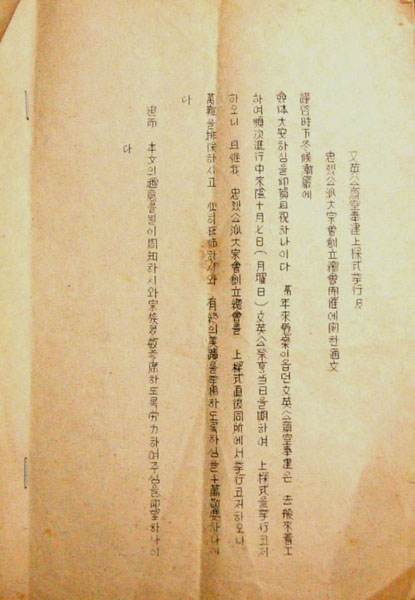 文英公齋室重建上樑式擧行及
忠烈公派大宗會創立總會開催에関한通文
謹啓時下冬候漸嚴에
僉体大安하심을仰賀且祝하나이다 萬年來宿案이옵던文英公齋室重建은 去般來着工
하여順次進行中來陰十月七日(月曜日)文英公祭享當日을期하여 上樑式을擧行코저
하오니 且維我 忠烈公派大宗會創立總會를 上樑式直後同所에서擧行코저하오니
萬難을排除하시고 仝 枉臨하시와 有終의美 를 하도록하심을千萬敬要하나이
다
追而 本文의趣意를널이周知하시와宗族多数參席하도록努力하여주심을仰望하나이
다